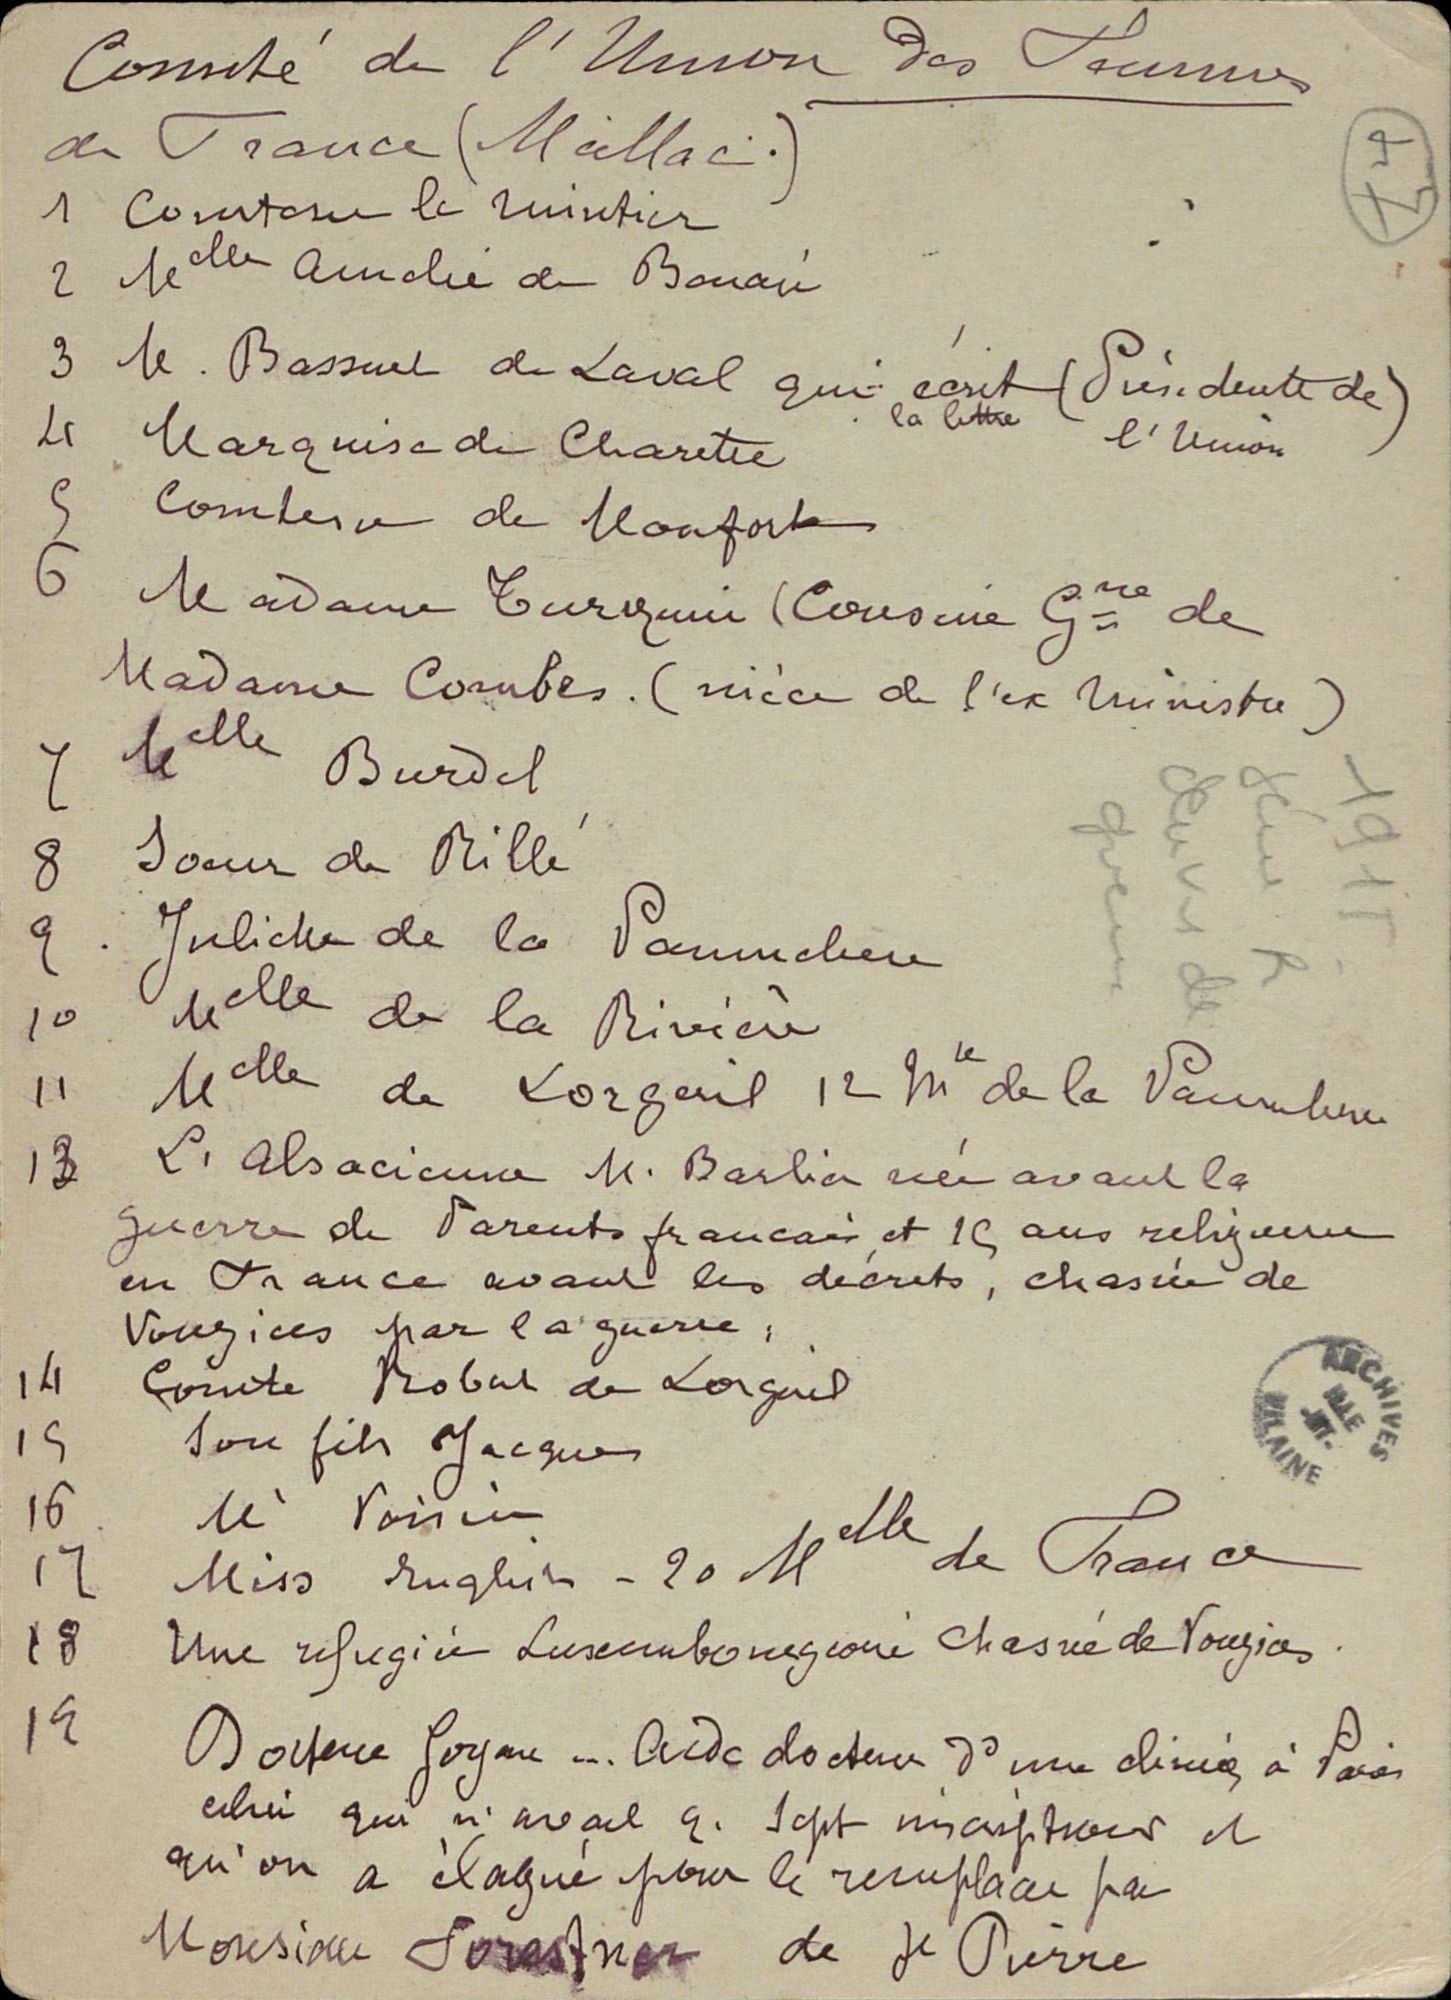 Comité de l'Union des Femmes
de France (Meillac.)
1 Comtesse le Mintier
2 Melle Amelie de Bonarié
3 M. Bassuel de Laval qui écrit (Présidente de)
la lettre l'Union
4 Marquise de Charette
5 Comtesse de Monfort
6 Madame Turquin (Cousine Gne de
Madame Combes. (nièce de l'ex Ministre)
7 Melle Burdel
8 Soeur de Rillé
9 Juliette de la Paumelière
10 Melle de la Rivière
11 Melle de Lorgeril 12 Mle de la Vaumelière
13 L'Alsacienne M. Barlier née avant la
guerre de Parents francais et 15 ans religieuse
en France avant les décrets, chassée de
Vouziers par la guerre,
14 Comte Robert de Lorgeril
15 Son fils Jacques
16 Me Voisin
17 Miss English - 20 Melle de France
18 Une refugiée Luxembourgeoise chassée de Vouziers.
19 Docteur Goyau ... Aide docteur d'une cliniq à Paris
celui qui n'avait q. sept inscriptions et
qu'on a élagué pour le remplacer par
Monsieur Forestner de St Pierre
1915
oeuvres de
guerre
ARCHIVES
ILLE
ET
VILAINE